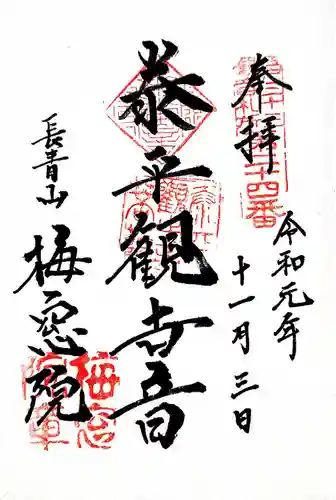 奉拝
第二十四番
令和元年
十一月三日
泰平観世音
長青山
梅窓院